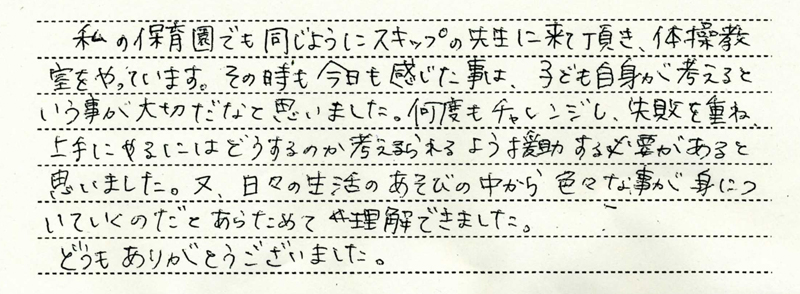 私の保育園でも同じようにスキップの先生に来て頂き、体操教
室をやっています。その時も今日も感じた事は、子ども自身が考えると
いう事が大切だなと思いました。何度もチャレンジし、失敗を重ね、
上手にやるにはどうするのか考えられるよう援助する必要があると
思いました。又、日々の生活のあそびの中から色々な事が身につ
いていくのだとあらためて理解できました。
どうもありがとうございました。